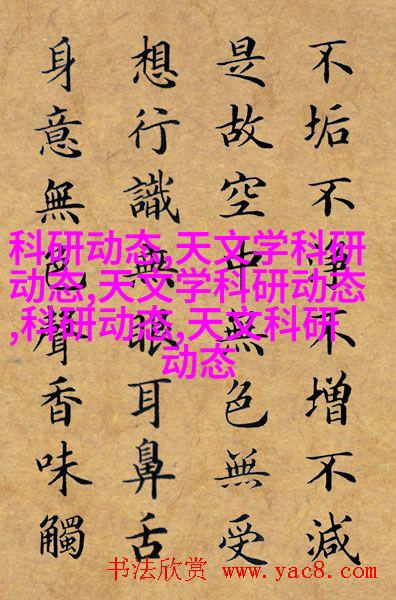 不垢不淨不增不減
是故空中無色無受
想行識無眼耳鼻舌
身意無色聲香味觸
科研动态,天文学科研
动态,天文学科研动态
,科研动态,天文科研
动态
书法欣赏 www.yac8.com